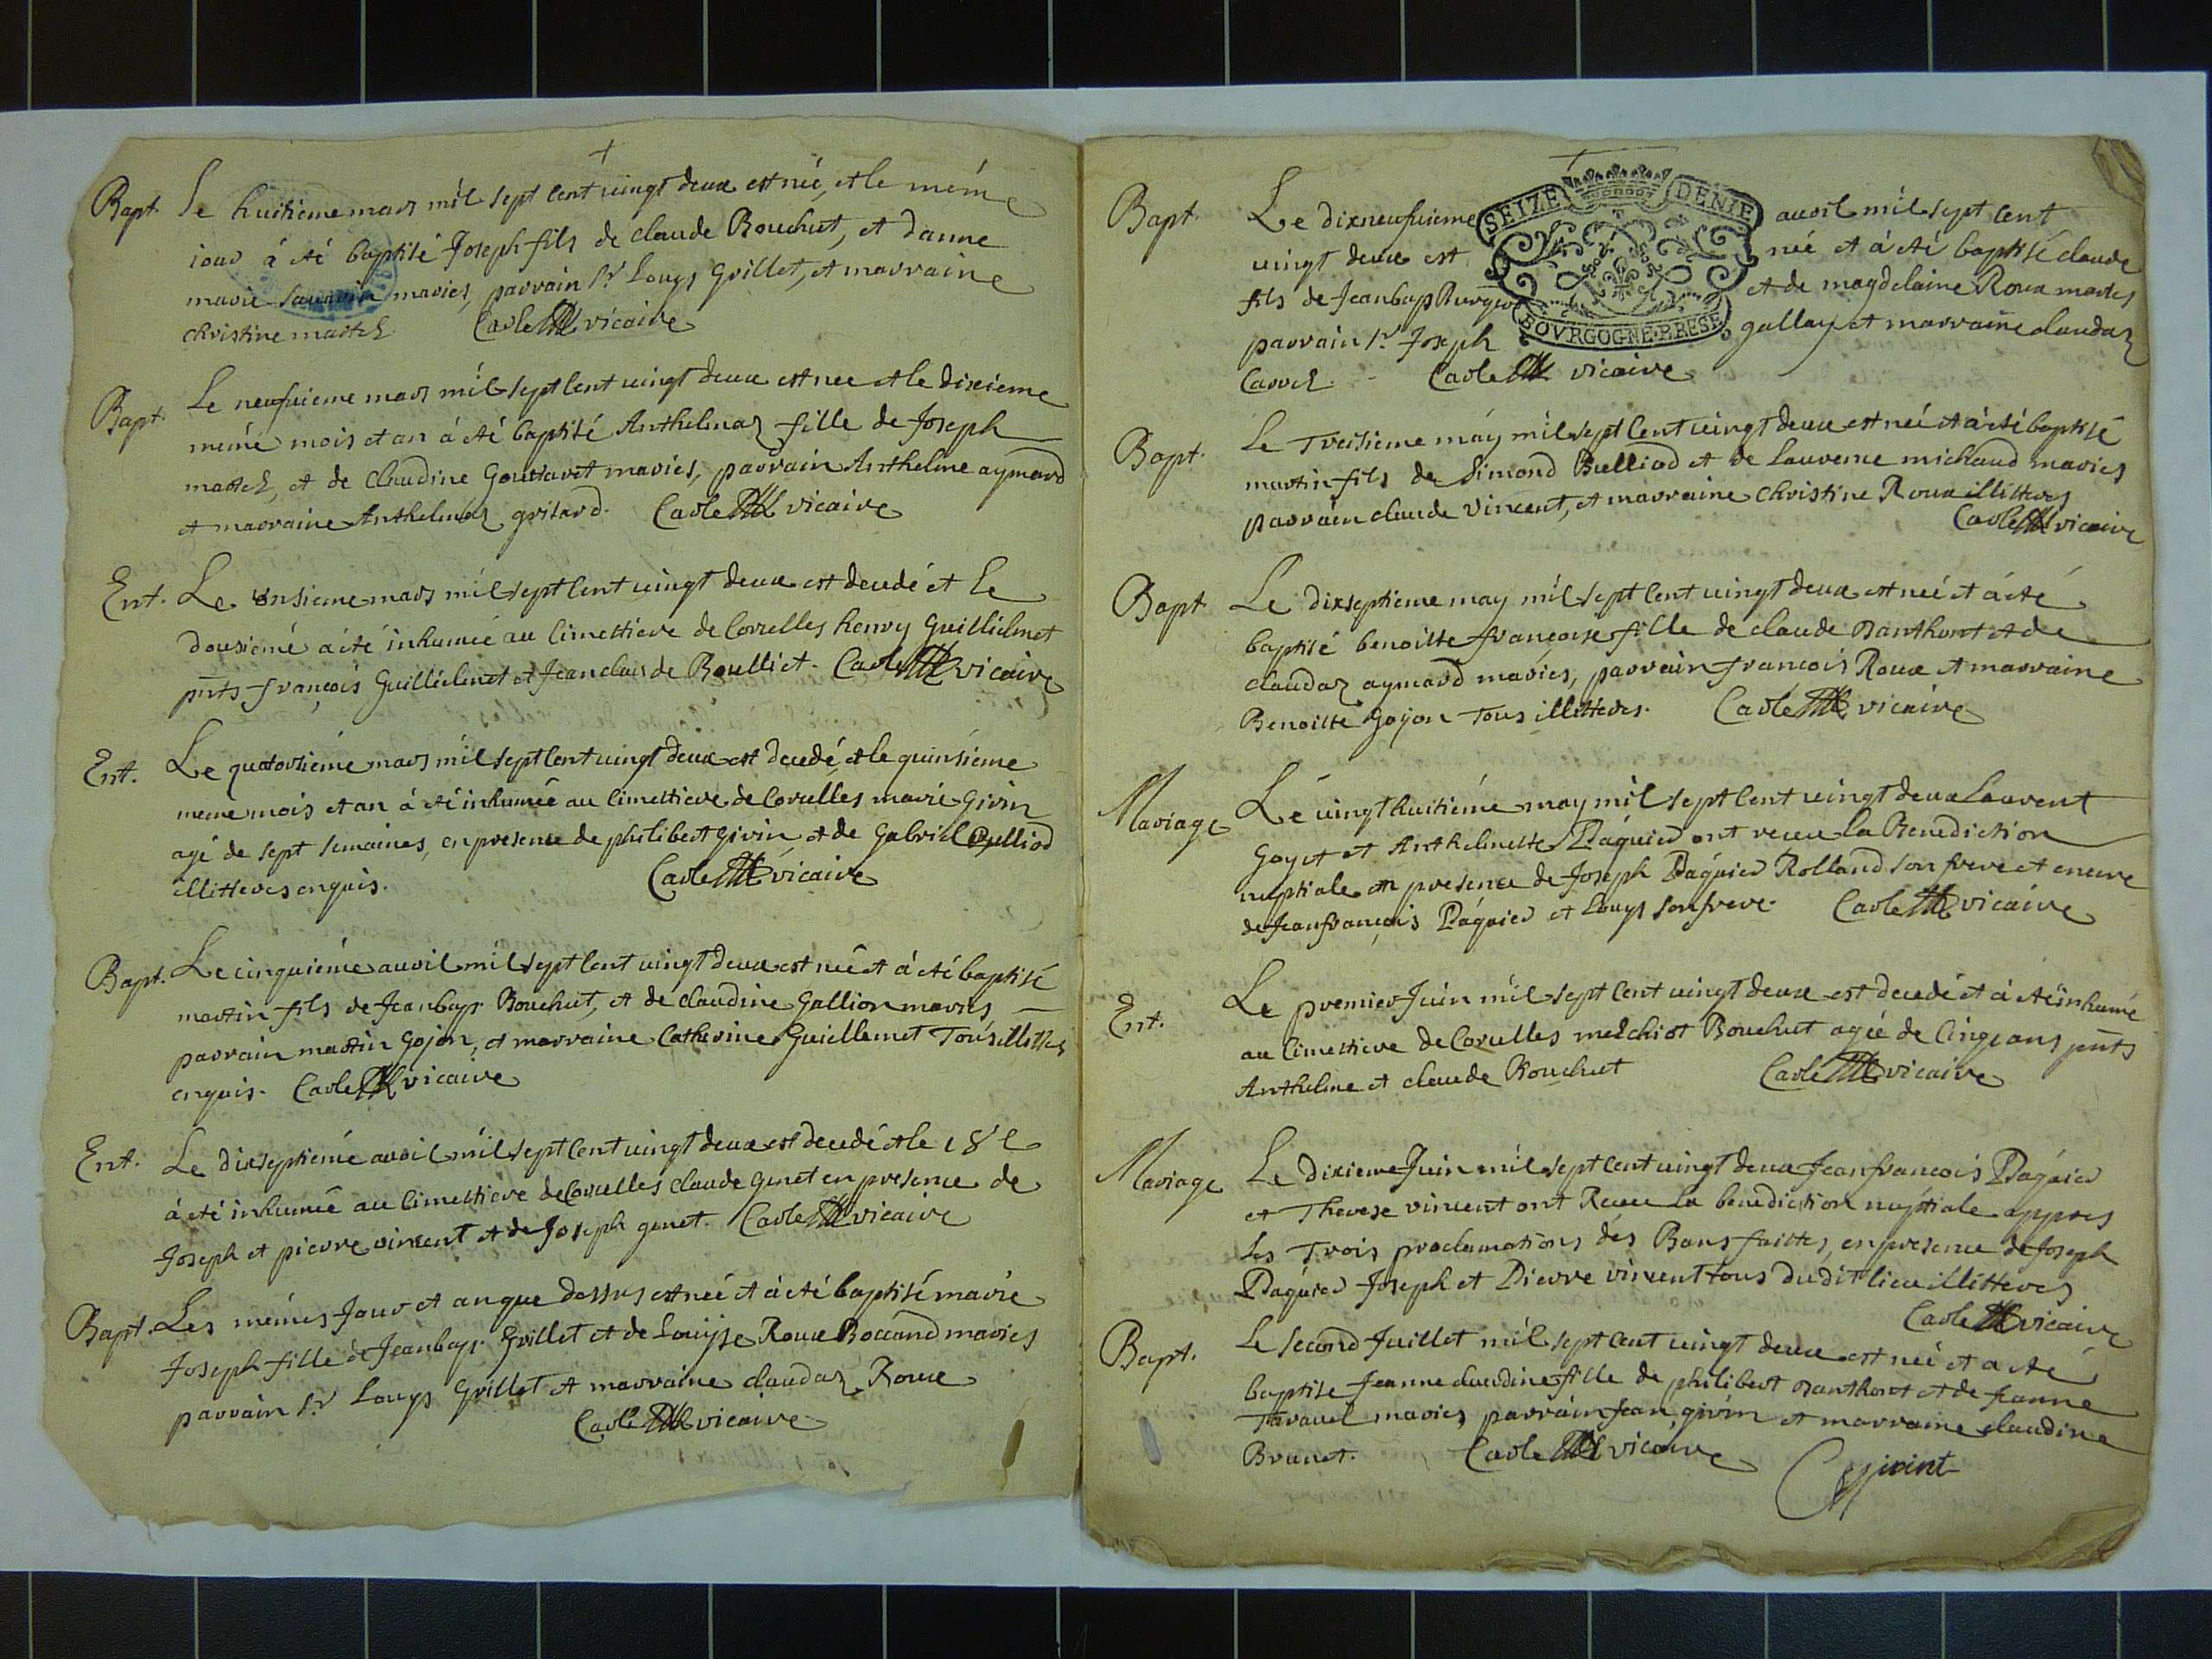 Bapt. Le huitieme mars mil sept cent vingt deux est né, et le mém̃e
jour á été baptisé Joseph fils de claude Bouchut, et danne
marie mariés, parrain Sr Louys Grillet, et marraine
christine martel Carle vicaire
Bapt. Le neufvieme mars mil sept cent vingt deux est nee et le dixieme
méme mois et an á été baptisé Anthelmaz fille de Joseph
martel, et de claudine Gouttavet mariés, parrain Anthelme aymard
et marraine Anthelmaz grisard. Carle vicaire
Ent. Le onsieme mars mil sept cent vingt deux est decedé et le
dousiemé a été inhumée au cimettiere de Corcelles henry Guillielmet
pñts françois Guillielmet et Jean claude Roulliet. Carle vicaire
Ent. Le quatorsiemé mars mil sept cent vingt deux est decedé et le quinsiéme
meme mois et an á été inhumée au cimettiere de Corcelles marie givin
agé de sept semaines, en presence de philibert givin, et de Gabriel Bulliod
illitteres enquis. Carle vicaire
Bapt. Le cinquiéme auril mil sept cent vingt deux est né et á été baptisé
martin fils de Jeanbap. Bouchut, et de claudine Gallion mariés
parrain martin gojon, et marraine Catherine Guillemet Tous illitteres
enquis. Carle vicaire
Ent. Le dixseptiemé auril mil sept cent vingt deux est decedé et le 18e
á été inhumée au cimettiere de Corcelles claude genet en presence de
Joseph et pierre vincent et de Joseph genet. Carle vicaire
Bapt. Les mémes Jour et an que dessus est née et á été baptisé marie
Joseph fille de Jeanbap. Grillet et de Louyse Roux Boccand mariés
parrain Sr Louys Grillet et marraine claudaz Roux
Carle vicaire
SEIZE DENIE
BOVRGOGNE.BRESE
Bapt. Le dixneufuieme auril mil sept cent
vingt deux est né et á été baptisé claude
fils de Jeanbap et de magdelaine Roux mariés
parrain Sr Joseph gallay et marraine claudaz
Carrel. Carle vicaire
Bapt. Le Treisieme máy mil sept cent vingt deux est né et á été baptisé
martin fils de Simond Bulliod et de Lauvene michaud mariés
parrain claude vincent, et marraine christine Roux illitteres
Carle vicaire
Bapt. Le dixseptieme may mil sept cent vingt deux est né et á été
baptisé benoitte francoise fille de claude Santhont et de
claudaz aymard mariés, parrain francois Roux et marraine
Benoitte Gojon Tous illitteres. Carle vicaire
Mariage Lé vingthuitiéme may mil sept cent vingt deux Laurent
Goyet et Anthelmette Páquier ont receu la Benediction
nuptiale en presence de Joseph Páquier Rolland son frere et encore
de Jeanfrançois Páquier et Louys son frere. Carle vicaire
Ent. Le premier Juin mil sept cent vingt deux est decedé et á été inhumé
au cimettiere de Corcelles melchiot Bouchut agée de cinq ans pñts
Anthelme et claude Bouchut Carle vicaire
Mariage Le dixieme Juin mil sept cent vingt deux Jeanfrancois Páquier
et Therese vincent ont Receu la benediction nuptiale appres
les Trois proclamations des Bans faittes, en presence de Joseph
Páquier Joseph et Pierre vincent tous dudit lieu illitteres
Carle vicaire
Bapt. Le second Juillet mil sept cent vingt deux est né et a été
baptise Jeanne claudine fille de philibert Santhont et de Jeanne
Taravel mariés parrain Jean givin et marraine claudine
Brunet. Carle vicaire